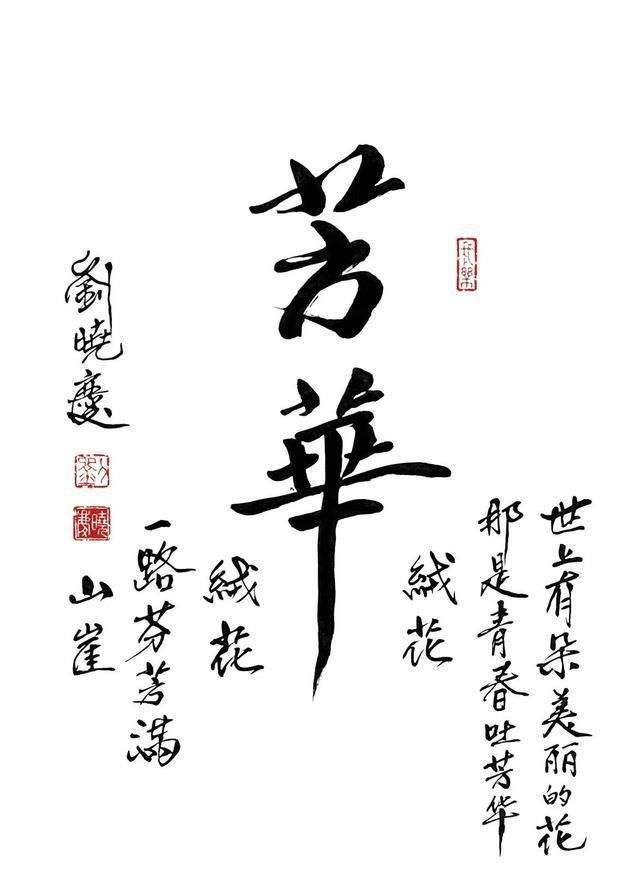 世上有朵美丽的花
那是青春吐芳华
絨花
芳華
絨花
一路芬芳满
山崖
劉曉慶
劉
曉慶